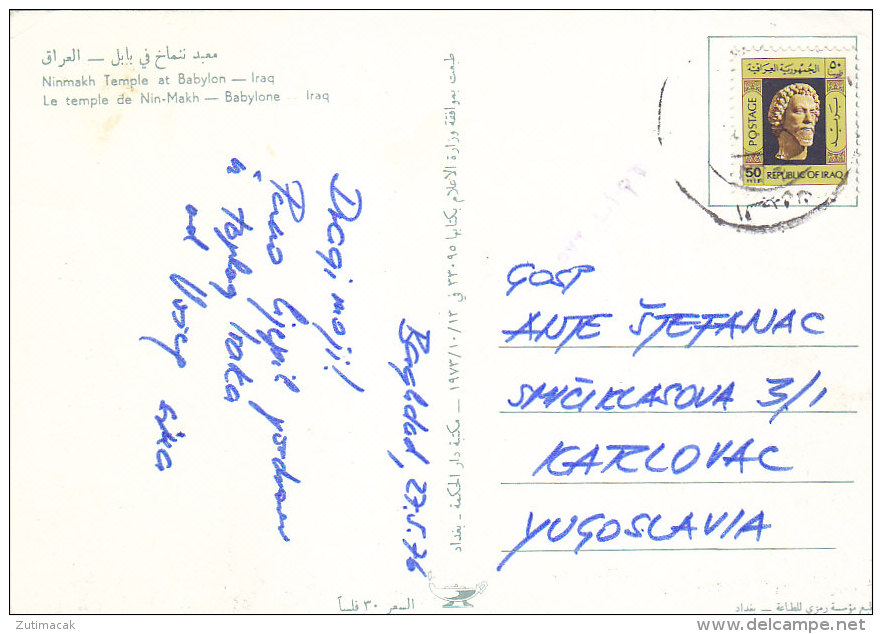 معبد ننماخ في بابل — العراق
Ninmakh Temple at Babylon — Iraq
Le temple de Nin-Makh — Babylone Iraq
الجمهورية العراقية ٥٠
POSTAGE
بريد
50 FILS REPUBLIC OF IRAQ
طبعت بموافقة وزارة الاعلام بكتابها ٢٣٠٩٥ في ١٩٧٣/١٠/١٣ — مكتبة دار الحكمة - بغداد
Bagdad, 27.5.76
Dragi moji!
Puno lijepih pozdrava
iz toplog Iraka
od Vašeg
GOSP
ANTE ŠTEFANAC
SMIČIKLASOVA 3/1
KARLOVAC
YUGOSLAVIA
السعر ٣٠ فلساً
مؤسسة رمزي للطباعة — بغداد
Zutimacak
delcampe.net